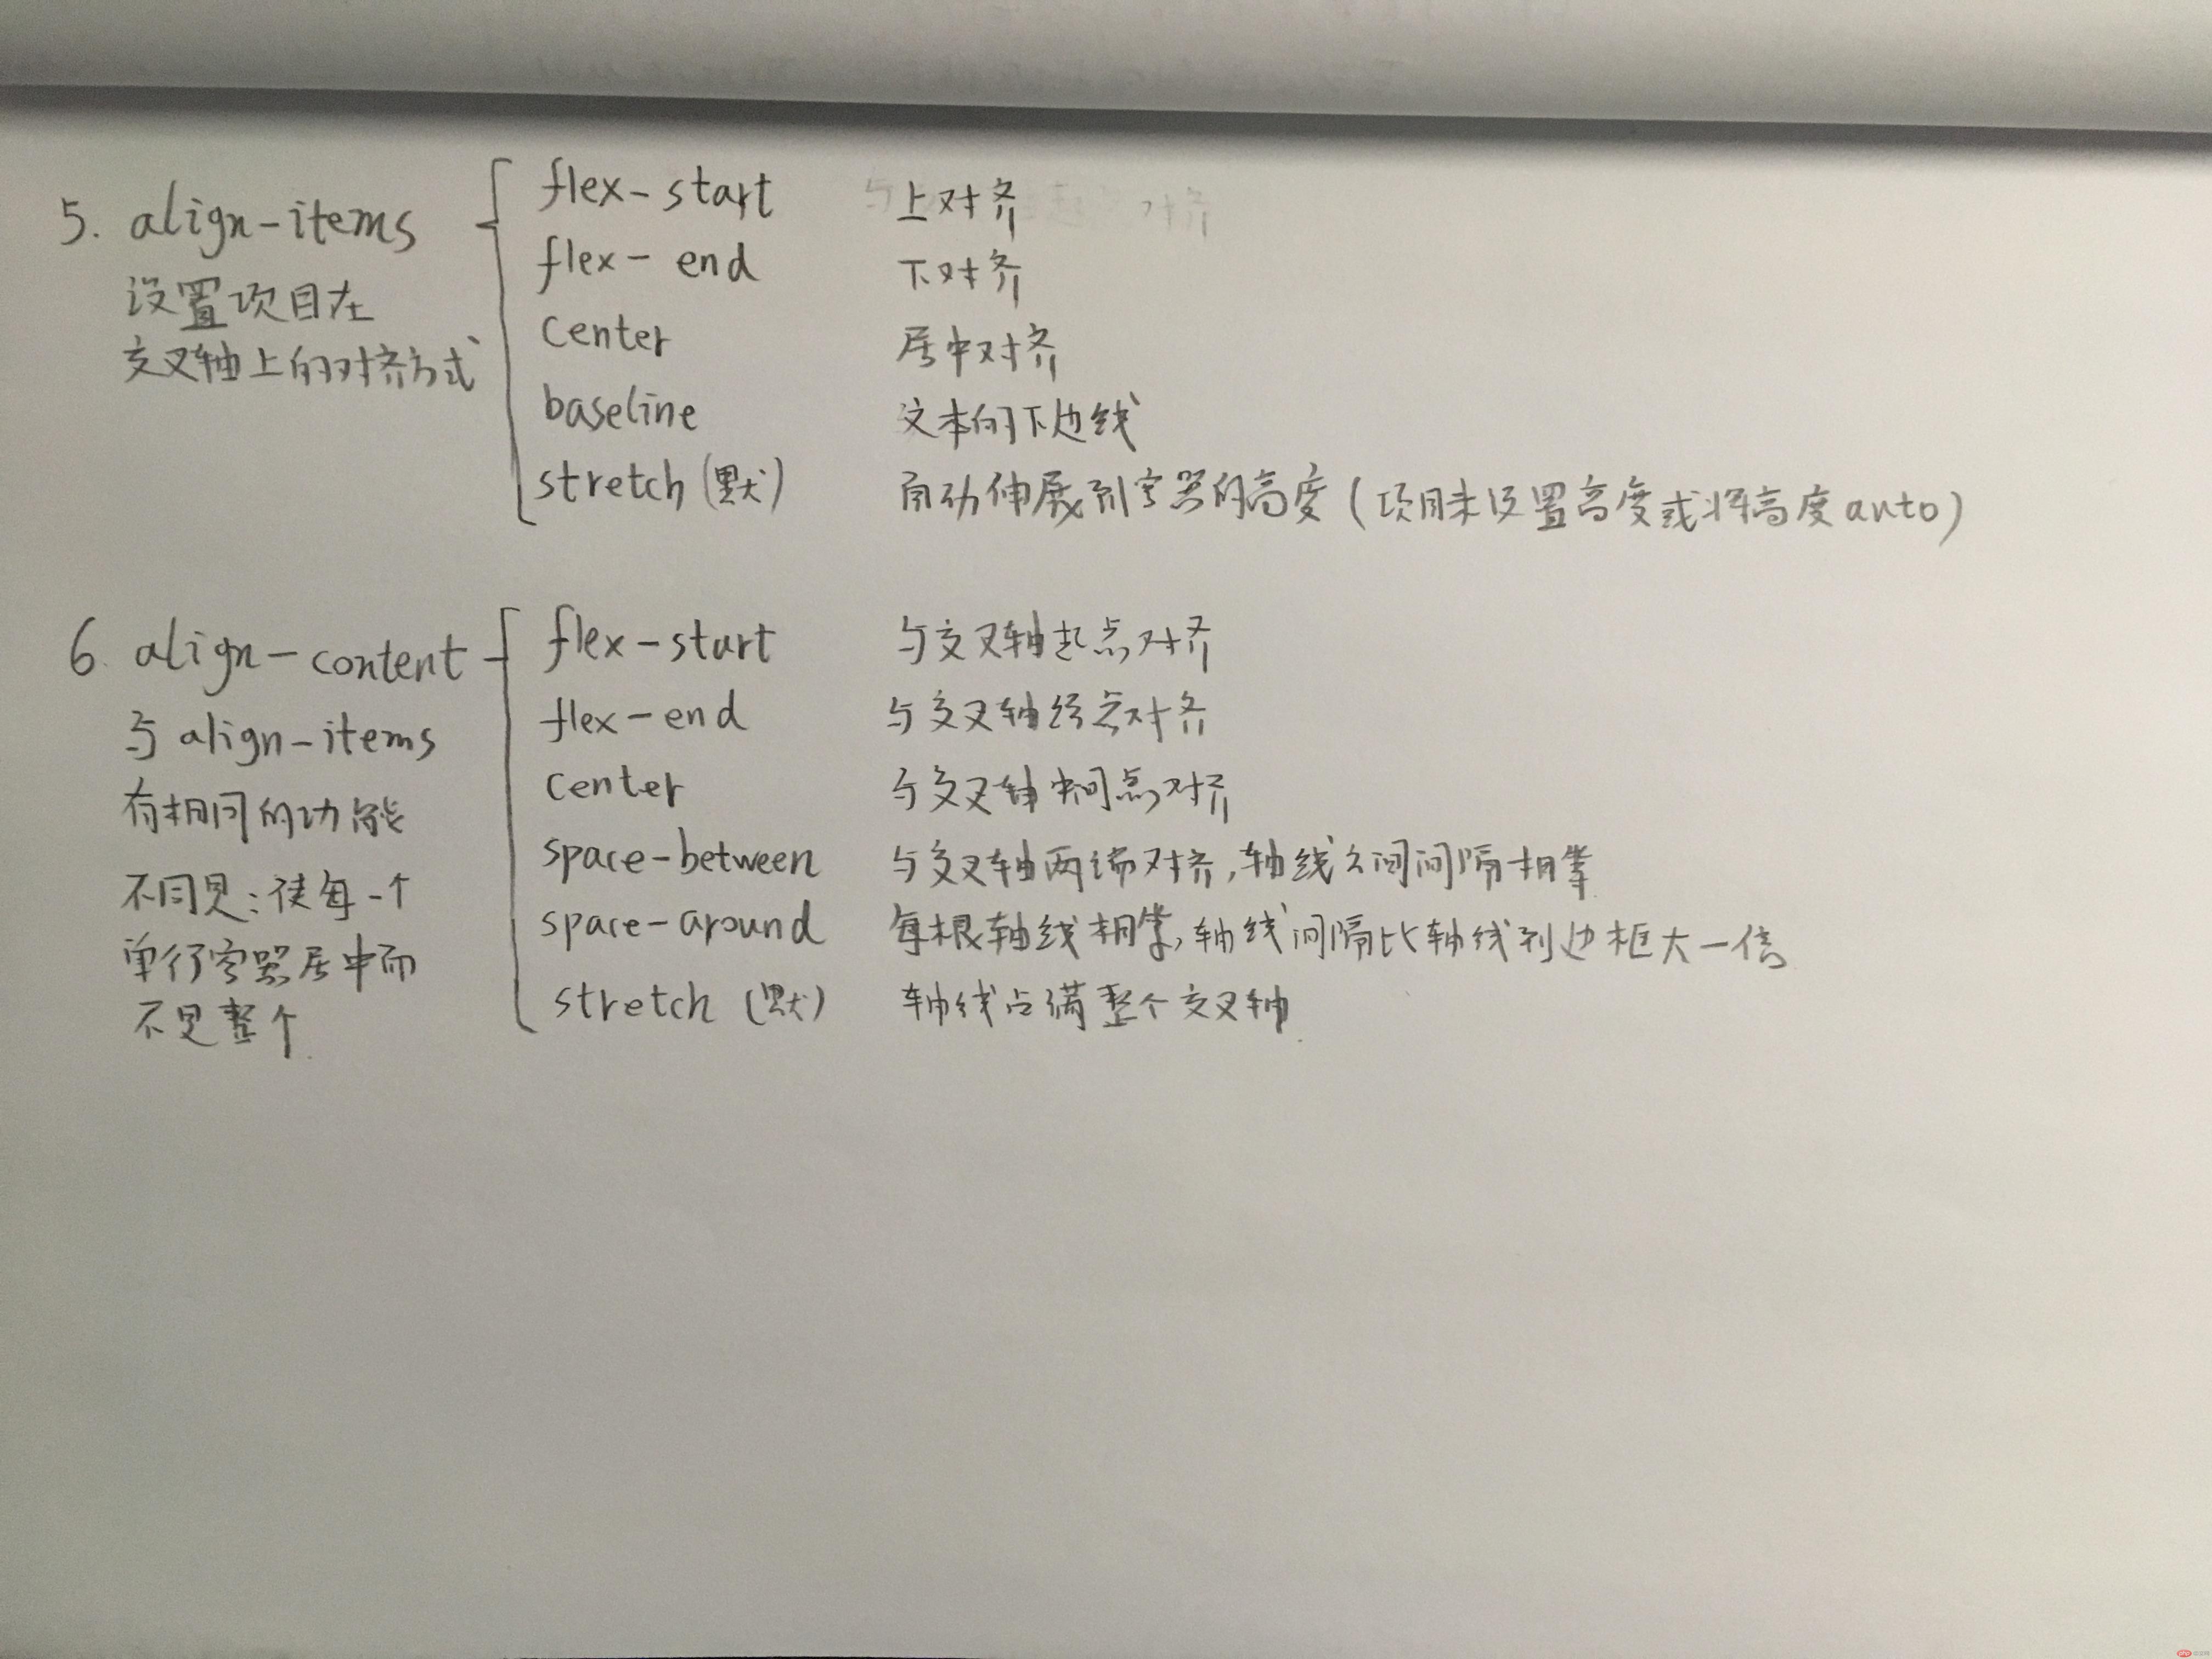 5. align-items
设置项目在
交叉轴上的对齐方式
flex-start 上对齐
flex-end 下对齐
center 居中对齐
baseline 文本的下边线
stretch(默) 自动伸展到容器的高度(项目未设置高度或将高度auto)
6. align-content
与align-items
有相同的功能
不同是:使每一个
单行容器居中而
不是整个
flex-start 与交叉轴起点对齐
flex-end 与交叉轴终点对齐
center 与交叉轴中间点对齐
space-between 与交叉轴两端对齐,轴线之间间隔相等
space-around 每根轴线相等,轴线间隔比轴线到边框大一倍
stretch(默) 轴线占满整个交叉轴.